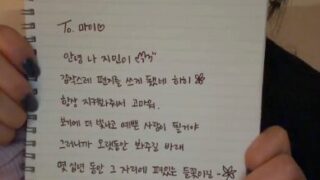 To. 마이♡
안녕 나 지민이
갑작스레 편지를 쓰게 됐네 히히
항상 지켜봐줘서 고마워.
보기에 더 빛나고 예쁜 사람이 될거야
그러니까 오랫동안 봐주길 바래
몇 십년 동안 그 자리에 피있는 들꽃이길 ~